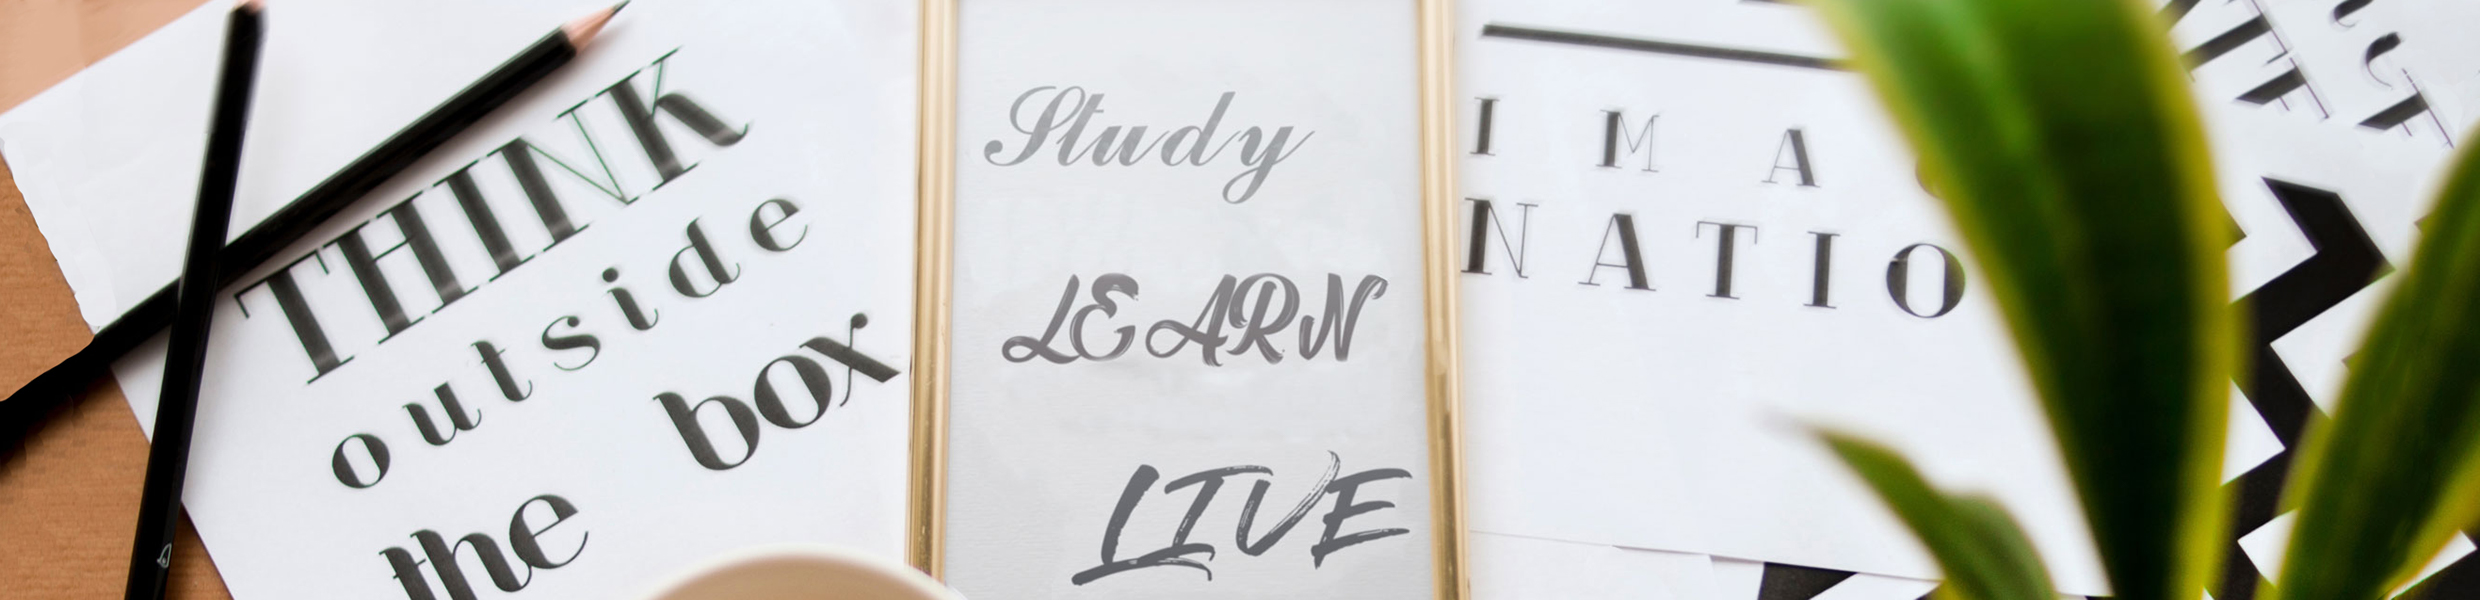 THINK
outside
the box
Study
LEARN
LIVE
IMA
NATIO